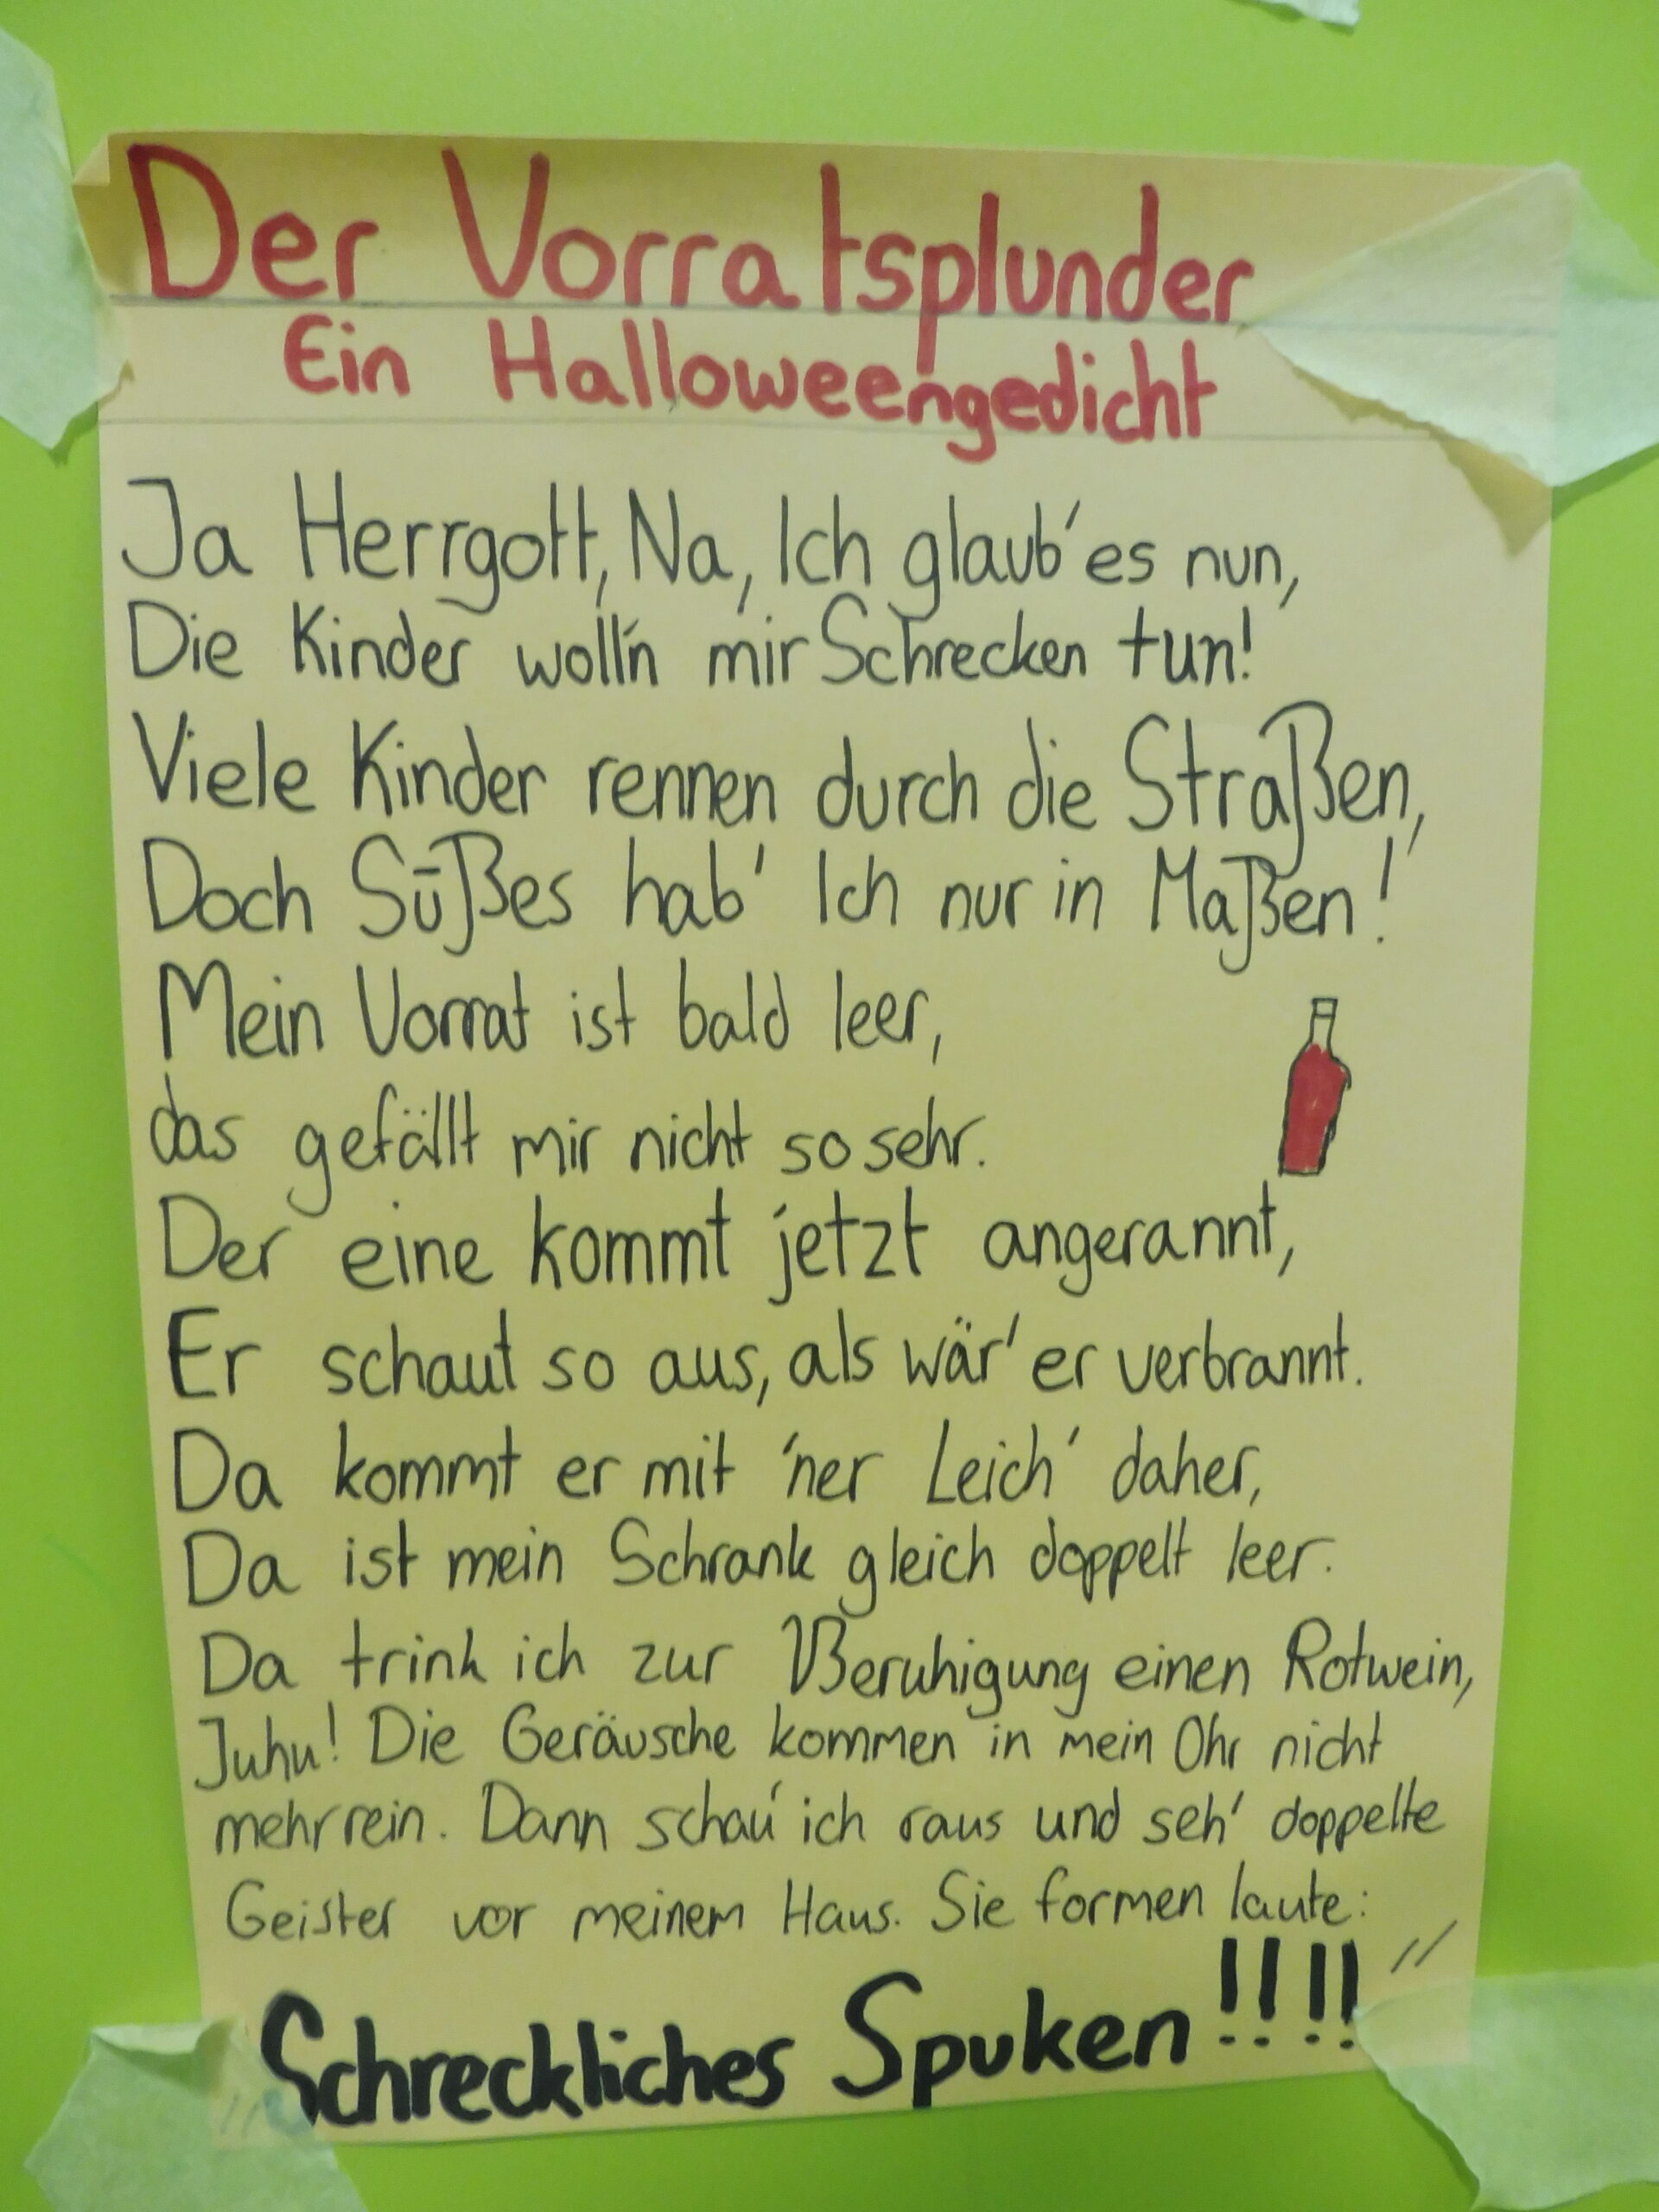 Der Vorratsplunder
Ein Halloweengedicht
Ja Herrgott, Na, Ich glaub' es nun,
Die Kinder woll'n mir Schrecken tun!
Viele Kinder rennen durch die Straßen,
Doch Süßes hab' Ich nur in Maßen!
Mein Vorrat ist bald leer,
das gefällt mir nicht so sehr.
Der eine kommt jetzt angerannt,
Er schaut so aus, als wär' er verbrannt.
Da kommt er mit 'ner Leich' daher,
Da ist mein Schrank gleich doppelt leer.
Da trink ich zur Beruhigung einen Rotwein,
Juhu! Die Geräusche kommen in mein Ohr nicht
mehr rein. Dann schau' ich raus und seh' doppelte
Geister vor meinem Haus. Sie formen laute:
"Schreckliches Spuken!!!!"